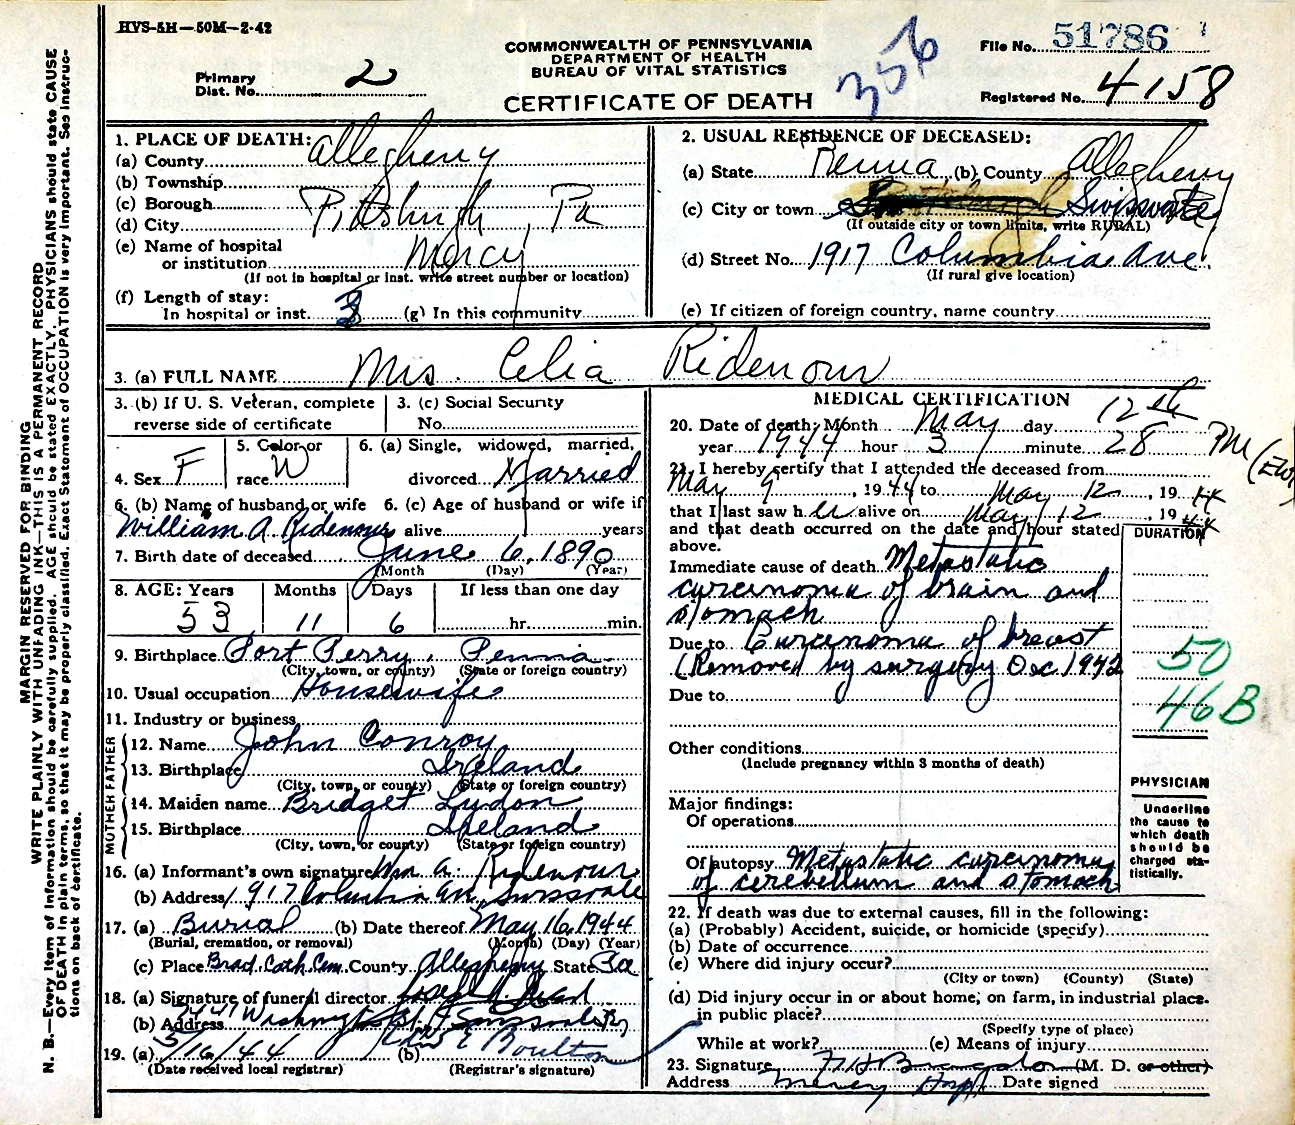 HVS-5H—50M—2-42
COMMONWEALTH OF PENNSYLVANIA
DEPARTMENT OF HEALTH
BUREAU OF VITAL STATISTICS
CERTIFICATE OF DEATH
356
File No. 51786
Primary Dist. No. 2
Registered No. 4158
MARGIN RESERVED FOR BINDING
WRITE PLAINLY WITH UNFADING INK—THIS IS A PERMANENT RECORD
N. B.—Every item of information should be carefully supplied. AGE should be stated EXACTLY. PHYSICIANS should state CAUSE
OF DEATH in plain terms, so that it may be properly classified. Exact Statement of OCCUPATION is very important. See instruc-
tions on back of certificate.
1. PLACE OF DEATH:
(a) County Allegheny
(b) Township
(c) Borough
(d) City Pittsburgh, Pa
(e) Name of hospital
or institution Mercy
(If not in hospital or inst. write street number or location)
(f) Length of stay:
In hospital or inst. 3 (g) In this community
2. USUAL RESIDENCE OF DECEASED:
(a) State Penna (b) County Allegheny
(c) City or town Swissvale
(If outside city or town limits, write RURAL)
(d) Street No. 1917 Columbia Ave.
(If rural give location)
(e) If citizen of foreign country, name country
3. (a) FULL NAME Mrs. Celia Ridenour
3. (b) If U. S. Veteran, complete
reverse side of certificate
3. (c) Social Security
No.
4. Sex F
5. Color or
race W
6. (a) Single, widowed, married,
divorced Married
6. (b) Name of husband or wife
William A. Ridenour
6. (c) Age of husband or wife if
alive years
7. Birth date of deceased June 6, 1890
(Month (Day) (Year)
8. AGE: Years Months Days If less than one day
53 11 6 hr. min.
9. Birthplace Port Perry, Penna.
(City, town, or county) (State or foreign country)
10. Usual occupation Housewife
11. Industry or business
FATHER
12. Name John Conroy
13. Birthplace Ireland
(City, town, or county) (State or foreign country)
MOTHER
14. Maiden name Bridget Lydon
15. Birthplace Ireland
(City, town, or county) (State or foreign country)
16. (a) Informant's own signature Wm A. Ridenour
(b) Address 1917 Columbia Av, Swissvale
17. (a) Burial (b) Date thereof May 16, 1944
(Burial, cremation, or removal) (Month) (Day) (Year)
(c) Place Brad. Cath. Cem. County Allegheny State Pa
18. (a) Signature of funeral director Joseph
(b) Address Washington Swissvale
19. (a) 5/16/44 (b) E Boulton
(Date received local registrar) (Registrar's signature)
MEDICAL CERTIFICATION
20. Date of death: Month May day 12th
year 1944 hour 3 minute 28 PM (EWT)
21. I hereby certify that I attended the deceased from
May 9, 1944 to May 12, 1944
that I last saw h er alive on May 12, 1944
and that death occurred on the date and hour stated
above.
DURATION
Immediate cause of death Metastatic
carcinoma of brain and
stomach
Due to Carcinoma of breast
(Removed by surgery Dec 1942
50
46B
Due to
Other conditions
(Include pregnancy within 3 months of death)
Major findings:
Of operations
Of autopsy Metastatic carcinoma
of cerebellum and stomach
PHYSICIAN
Underline
the cause to
which death
should be
charged sta-
tistically.
22. If death was due to external causes, fill in the following:
(a) (Probably) Accident, suicide, or homicide (specify)
(b) Date of occurrence
(c) Where did injury occur?
(City or town) (County) (State)
(d) Did injury occur in or about home, on farm, in industrial place,
in public place?
(Specify type of place)
While at work? (e) Means of injury
23. Signature (M. D. or other)
Address Mercy Hosp Date signed